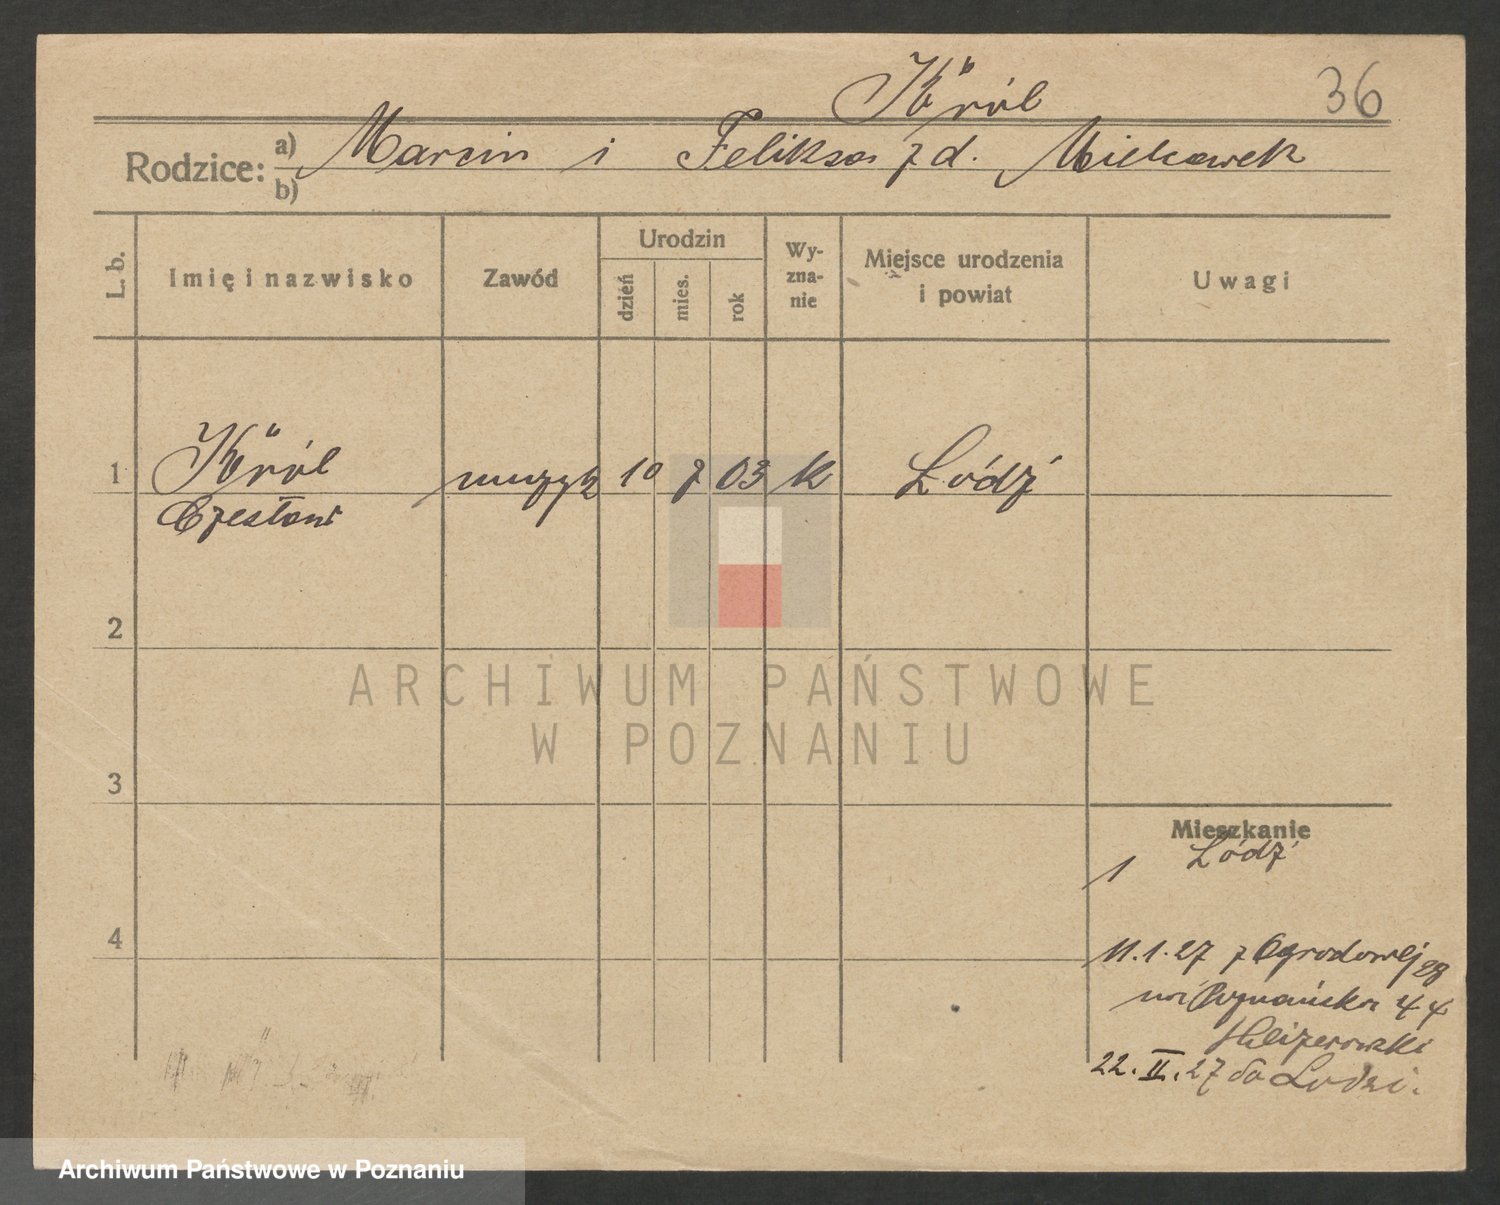 Król
36
Rodzice: a) Marcin i Feliksa z d.
b)
L. b.
Imię i nazwisko
Zawód
Urodzin
dzień
mies.
rok
Wy-
zna-
nie
Miejsce urodzenia
i powiat
Uwagi
1 Król muzyk 10 7 03 K Łódź
Czesław
2
ARCHIWUM PAŃSTWOWE
W POZNANIU
3
Mieszkanie
1 Łódź
4
11.1.27 z Ogrodowej 28
na Poznańska 44
22.II.27 do Łodzi.
Archiwum Państwowe w Poznaniu